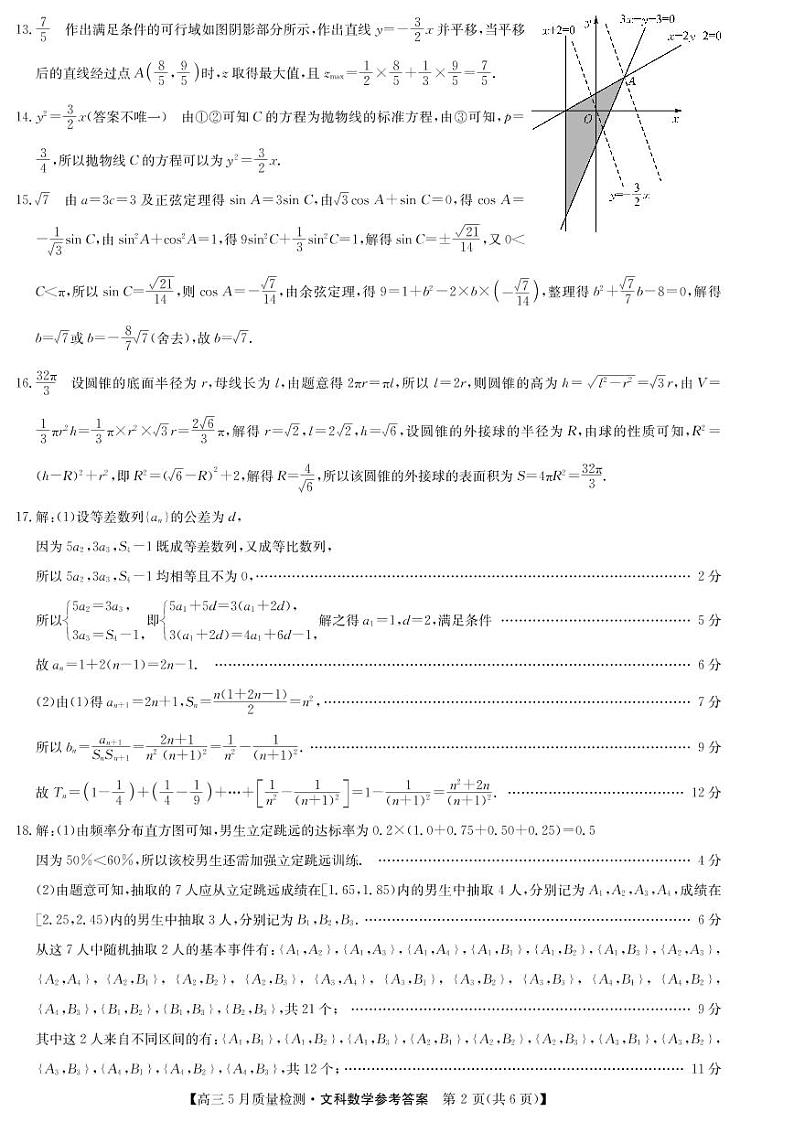 13. 7/5 作出满足条件的可行域如图阴影部分所示,作出直线 y=-3/2 x 并平移,当平移
后的直线经过点 A(8/5,9/5)时,z 取得最大值,且 zmax=1/2×8/5+1/3×9/5=7/5.
x+2=0
y
3x-y-3=0
x-2y+2=0
A
O
x
y=-3/2 x
14. y²=3/2 x(答案不唯一) 由①②可知 C 的方程为抛物线的标准方程,由③可知,p=
3/4,所以抛物线 C 的方程可以为 y²=3/2 x.
15. √7 由 a=3c=3 及正弦定理得 sin A=3sin C,由√3 cos A+sin C=0,得 cos A=
-1/√3 sin C,由 sin²A+cos²A=1,得 9sin²C+1/3 sin²C=1,解得 sin C=±√21/14,又 0<
C<π,所以 sin C=√21/14,则 cos A=-√7/14,由余弦定理,得 9=1+b²-2×b×(-√7/14),整理得 b²+√7/7 b-8=0,解得
b=√7或 b=-8/7√7(舍去),故 b=√7.
16. 32π/3 设圆锥的底面半径为 r,母线长为 l,由题意得 2πr=πl,所以 l=2r,则圆锥的高为 h=√(l²-r²)=√3 r,由 V=
1/3 πr²h=1/3 π×r²×√3 r=2√6/3 π,解得 r=√2,l=2√2,h=√6,设圆锥的外接球的半径为 R,由球的性质可知,R²=
(h-R)²+r²,即 R²=(√6-R)²+2,解得 R=4/√6,所以该圆锥的外接球的表面积为 S=4πR²=32π/3.
17. 解:(1)设等差数列{aₙ}的公差为 d,
因为 5a₂,3a₃,S₄-1 既成等差数列,又成等比数列,
所以 5a₂,3a₃,S₄-1 均相等且不为 0,…… 2 分
所以{5a₂=3a₃, 3a₃=S₄-1, 即{5a₁+5d=3(a₁+2d), 3(a₁+2d)=4a₁+6d-1, 解之得 a₁=1,d=2,满足条件 …… 5 分
故 aₙ=1+2(n-1)=2n-1. …… 6 分
(2)由(1)得 aₙ₊₁=2n+1,Sₙ=n(1+2n-1)/2=n²,…… 7 分
所以 bₙ=aₙ₊₁/(SₙSₙ₊₁)=(2n+1)/(n²(n+1)²)=1/n²-1/(n+1)². …… 9 分
故 Tₙ=(1-1/4)+(1/4-1/9)+…+[1/n²-1/(n+1)²]=1-1/(n+1)²=(n²+2n)/(n+1)². …… 12 分
18. 解:(1)由频率分布直方图可知,男生立定跳远的达标率为 0.2×(1.0+0.75+0.50+0.25)=0.5
因为 50%<60%,所以该校男生还需加强立定跳远训练. …… 4 分
(2)由题意可知,抽取的 7 人应从立定跳远成绩在[1.65,1.85)内的男生中抽取 4 人,分别记为 A₁,A₂,A₃,A₄,成绩在
[2.25,2.45)内的男生中抽取 3 人,分别记为 B₁,B₂,B₃. …… 6 分
从这 7 人中随机抽取 2 人的基本事件有:{A₁,A₂},{A₁,A₃},{A₁,A₄},{A₁,B₁},{A₁,B₂},{A₁,B₃},{A₂,A₃},
{A₂,A₄},{A₂,B₁},{A₂,B₂},{A₂,B₃},{A₃,A₄},{A₃,B₁},{A₃,B₂},{A₃,B₃},{A₄,B₁},{A₄,B₂},
{A₄,B₃},{B₁,B₂},{B₁,B₃},{B₂,B₃},共 21 个; …… 9 分
其中这 2 人来自不同区间的有:{A₁,B₁},{A₁,B₂},{A₁,B₃},{A₂,B₁},{A₂,B₂},{A₂,B₃},{A₃,B₁},{A₃,B₂},
{A₃,B₃},{A₄,B₁},{A₄,B₂},{A₄,B₃},共 12 个;…… 11 分
【高三 5 月质量检测·文科数学参考答案 第 2 页(共 6 页)】